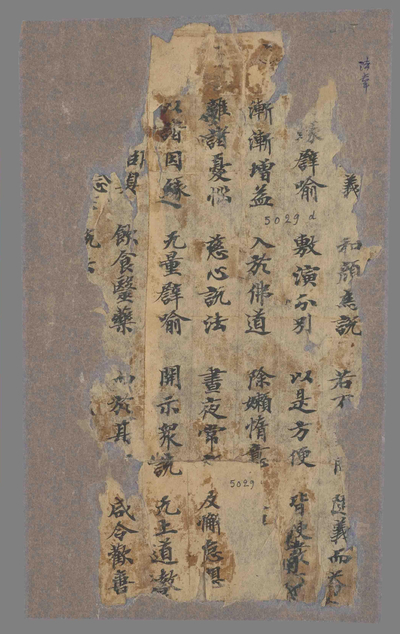 義 和顏為說 若 隨義而答
緣譬喻 敷演分別 以是方便 皆使發
漸漸增益 入於佛道 除嬾惰意
離諸憂惱 慈心說法 晝夜常 及懈怠想
以諸因緣 无量譬喻 開示眾 說 无上道教
具 飲食醫藥 而於其 咸令歡喜
念
5029 d
5029